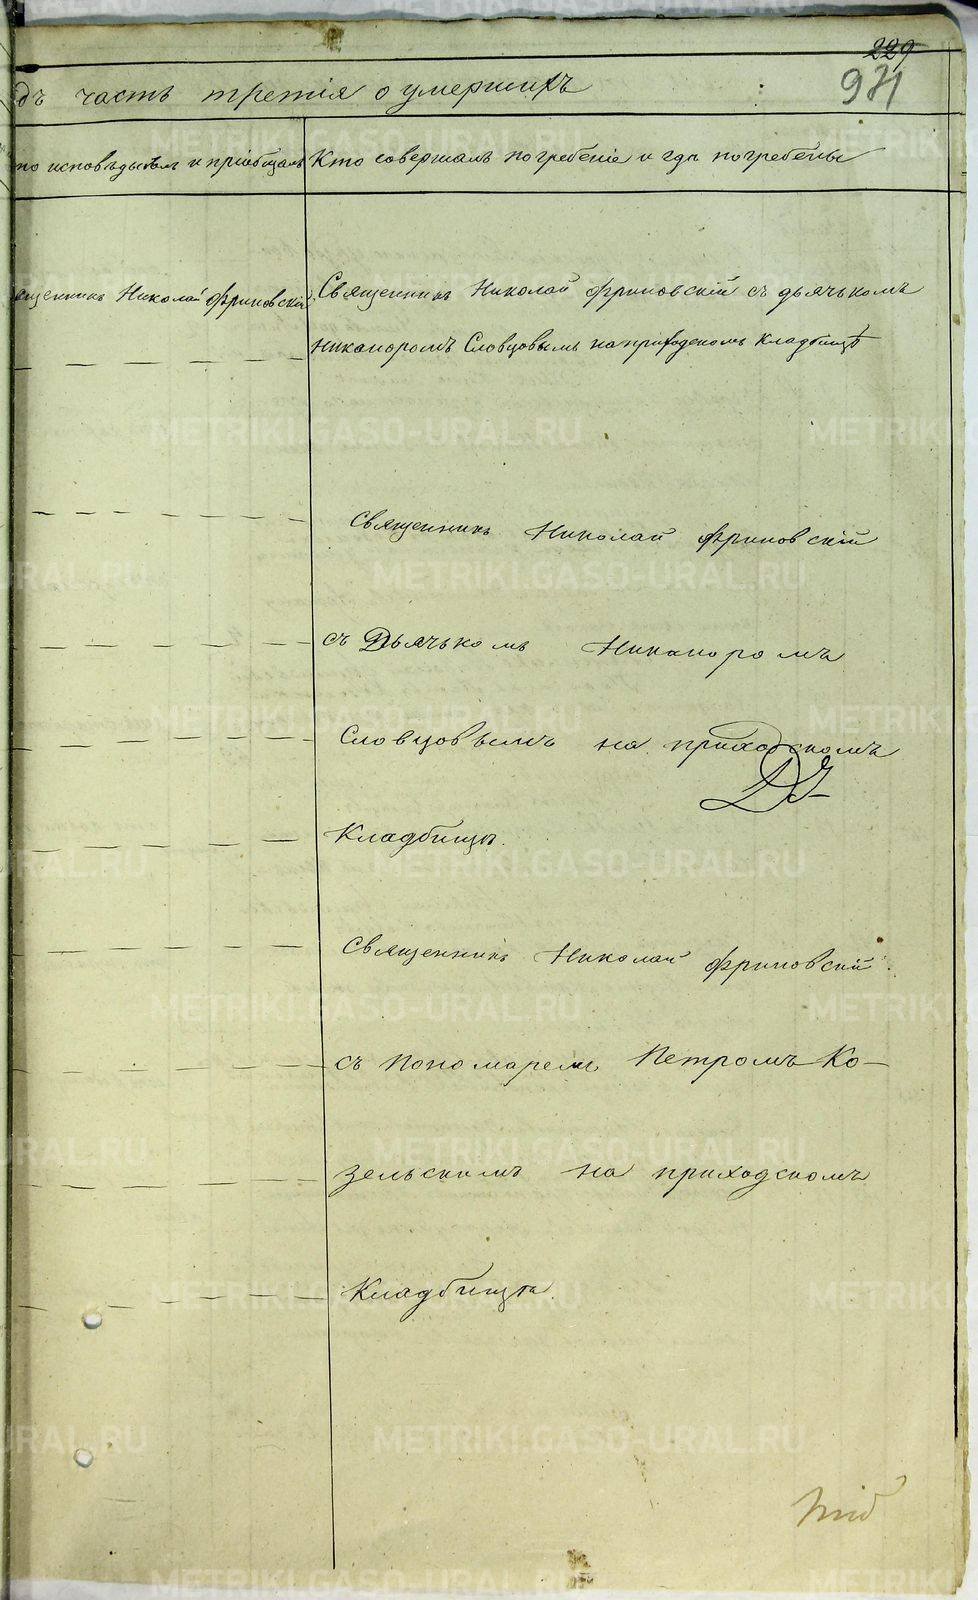 229
931
дъ часть третія о умершихъ
то исповѣдывалъ и пріобщалъ
Кто совершалъ погребеніе и гдѣ погребены
ященникъ Николай Фриновскій
Священникъ Николай Фриновскій съ дьячькомъ
Никаноромъ Словцовымъ на приходскомъ Кладбищѣ
Священникъ Николай Фриновскій
съ Дьячькомъ Никаноромъ
Словцовымъ на приходскомъ
Кладбищѣ.
Священникъ Николай Фриновскій
съ Пономаремъ Петромъ Ко-
зельскимъ на приходскомъ
Кладбищѣ.
METRIKI.GASO-URAL.RU